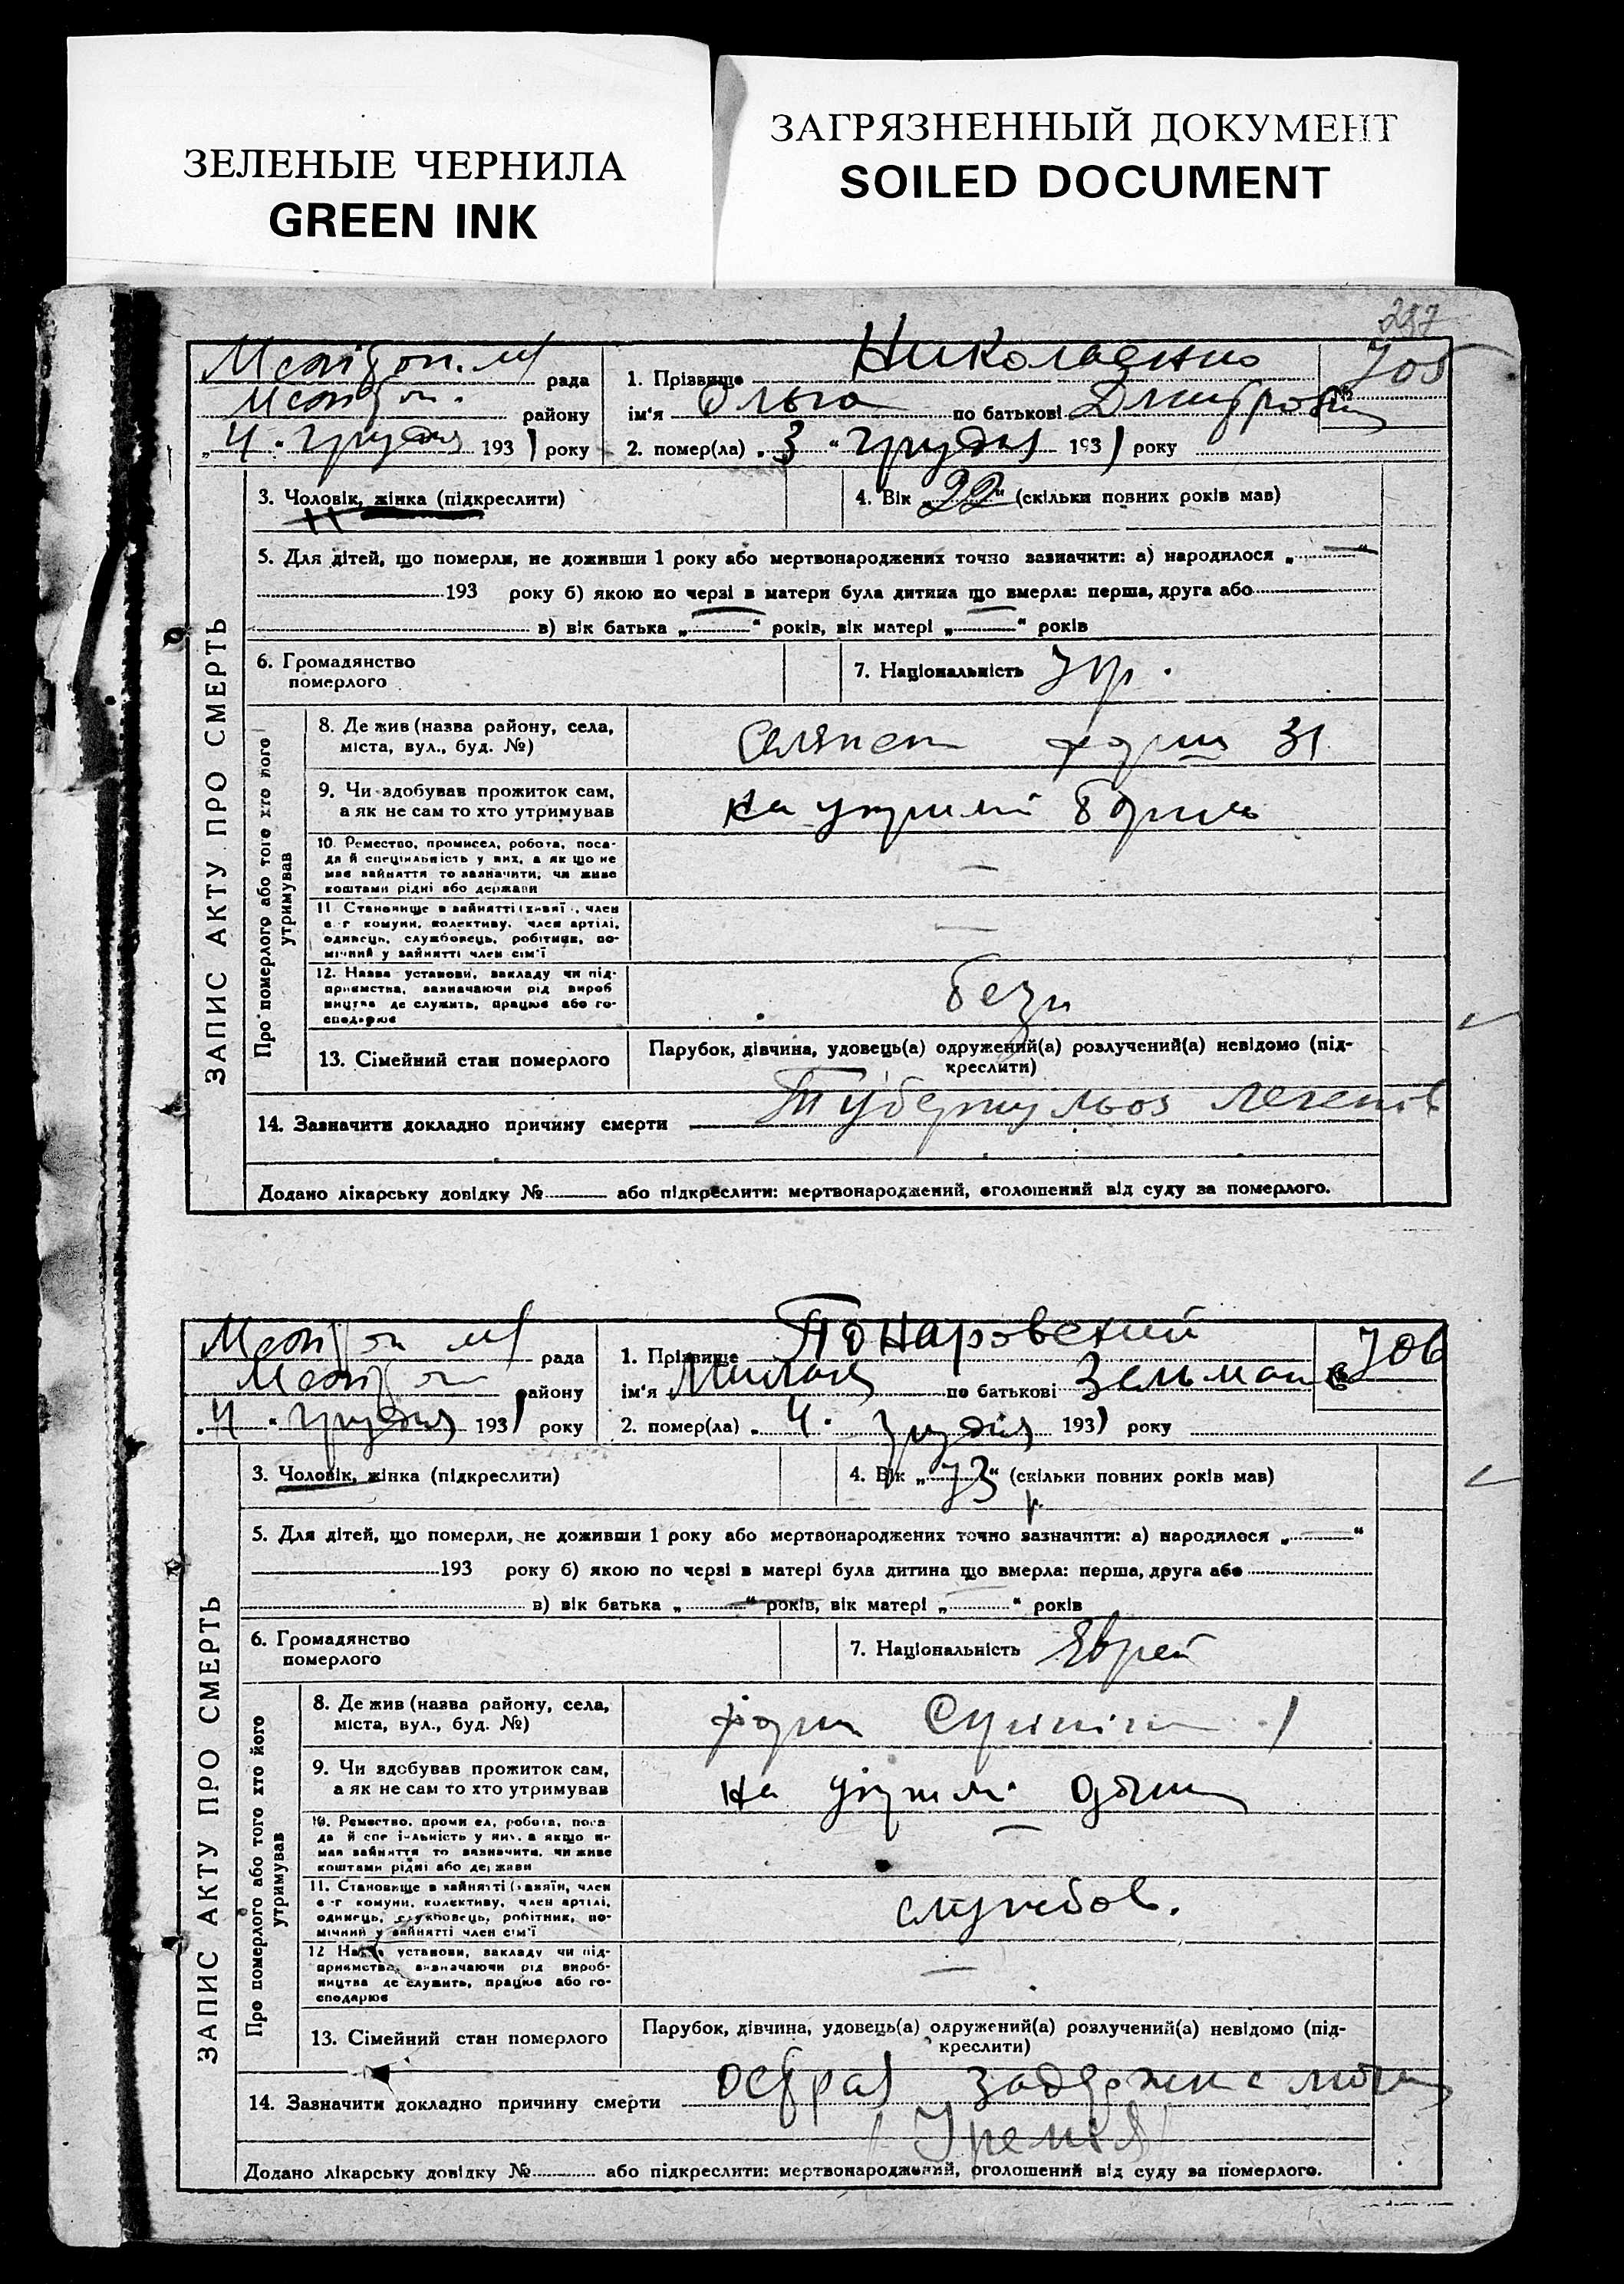 ЗЕЛЕНЫЕ ЧЕРНИЛА
GREEN INK
ЗАГРЯЗНЕННЫЙ ДОКУМЕНТ
SOILED DOCUMENT
рада
району
„4 грудня 1931 року
1. Прізвище
ім'я Ольга по батькові
2. помер(ла) „3“ грудня 1931 року
705
ЗАПИС АКТУ ПРО СМЕРТЬ
3. Чоловік, жінка (підкреслити)
4. Вік „22“ (скільки повних років мав)
5. Для дітей, що померли, не доживши 1 року або мертвонароджених точно зазначити: а) народилося „ “
193 року б) якою по черзі в матери була дитина що вмерла: перша, друга або
в) вік батька „ “ років, вік матері „ “ років
6. Громадянство
померлого
7. Національність Укр.
Про померлого або того хто його
утримував
8. Де жив (назва району, села,
міста, вул., буд. №)
31
9. Чи здобував прожиток сам,
а як не сам то хто утримував
на
10. Ремество, промисел, робота, поса-
да й спеціяльність у них, а як що не
має зайняття то зазначити, чи живе
коштами рідні або держави
11. Становище в зайнятті член
комуни, колективу, член артілі,
одинець, службовець, робітник, по-
мічний у зайнятті член сім'ї
12. Назва установи, закладу чи під-
приємства, зазначаючи рід вироб
ництва де служить, працює або го-
сподарює
13. Сімейний стан померлого
Парубок, дівчина, удовець(а) одружений(а) розлучений(а) невідомо (під-
креслити)
14. Зазначити докладно причину смерти Туберкульоз легенів
Додано лікарську довідку № або підкреслити: мертвонароджений, оголошений від суду за померлого.
рада
району
„4 грудня 1931 року
1. Прізвище
ім'я по батькові
2. помер(ла) „4 грудня 1931 року
706
ЗАПИС АКТУ ПРО СМЕРТЬ
3. Чоловік, жінка (підкреслити)
4. Вік „73“ (скільки повних років мав)
5. Для дітей, що померли, не доживши 1 року або мертвонароджених точно зазначити: а) народилося „ “
193 року б) якою по черзі в матері була дитина що вмерла: перша, друга або
в) вік батька „ “ років, вік матері „ “ років
6. Громадянство
померлого
7. Національність Еврей
Про померлого або того хто його
утримував
8. Де жив (назва району, села,
міста, вул., буд. №)
1
9. Чи здобував прожиток сам,
а як не сам то хто утримував
на
10. Ремество, промисел, робота, поса
да й спеціяльність у них, а якщо не
має зайняття то зазначити, чи живе
коштами рідні або держави
11. Становище в зайнятті член
комуни, колективу, член артілі,
одинець, службовець, робітник, по-
мічний у зайнятті член сім'ї
службов.
12. Назва установи, закладу чи під-
приємства, зазначаючи рід вироб-
ництва де служить, працює або го-
сподарює
13. Сімейний стан померлого
Парубок, дівчина, удовець(а) одружений(а) розлучений(а) невідомо (під-
креслити)
14. Зазначити докладно причину смерти
Додано лікарську довідку № або підкреслити: мертвонароджений, оголошений від суду за померлого.